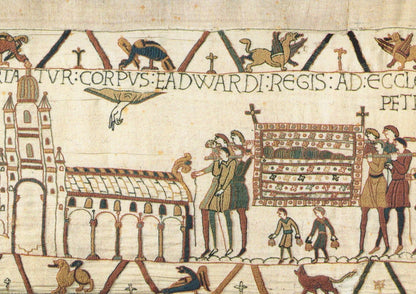 TA TVR: CORPVS: EADWARDI: REGIS: AD: ECCL
PETRI